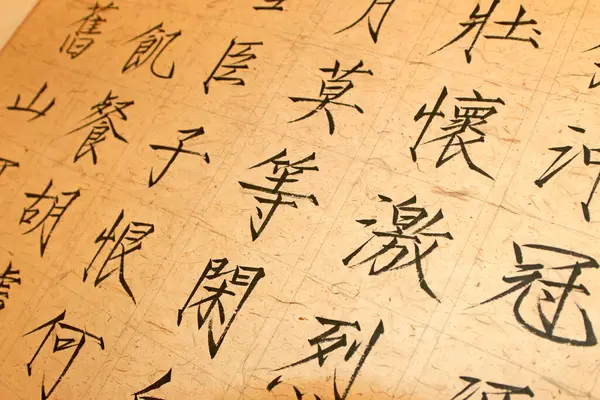 冠
壯懷激烈
月莫等閑
臣子恨何
飢餐胡
舊山